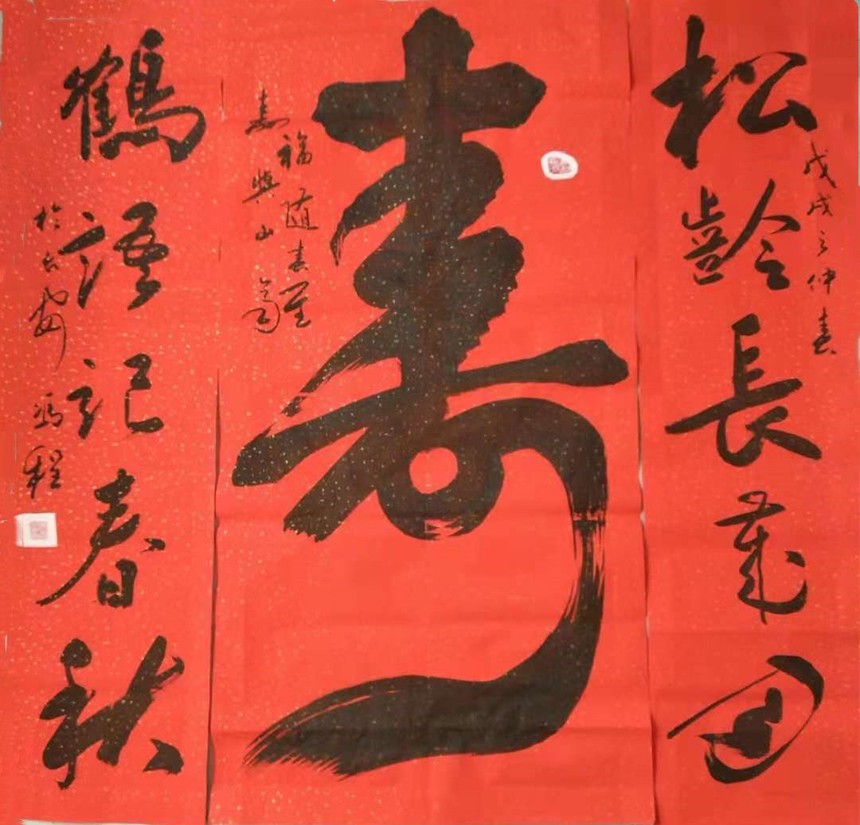 戊戌之仲春
松齡長歲月
壽
福隨春
壽與山高
鶴語記春秋
於長安 馮程